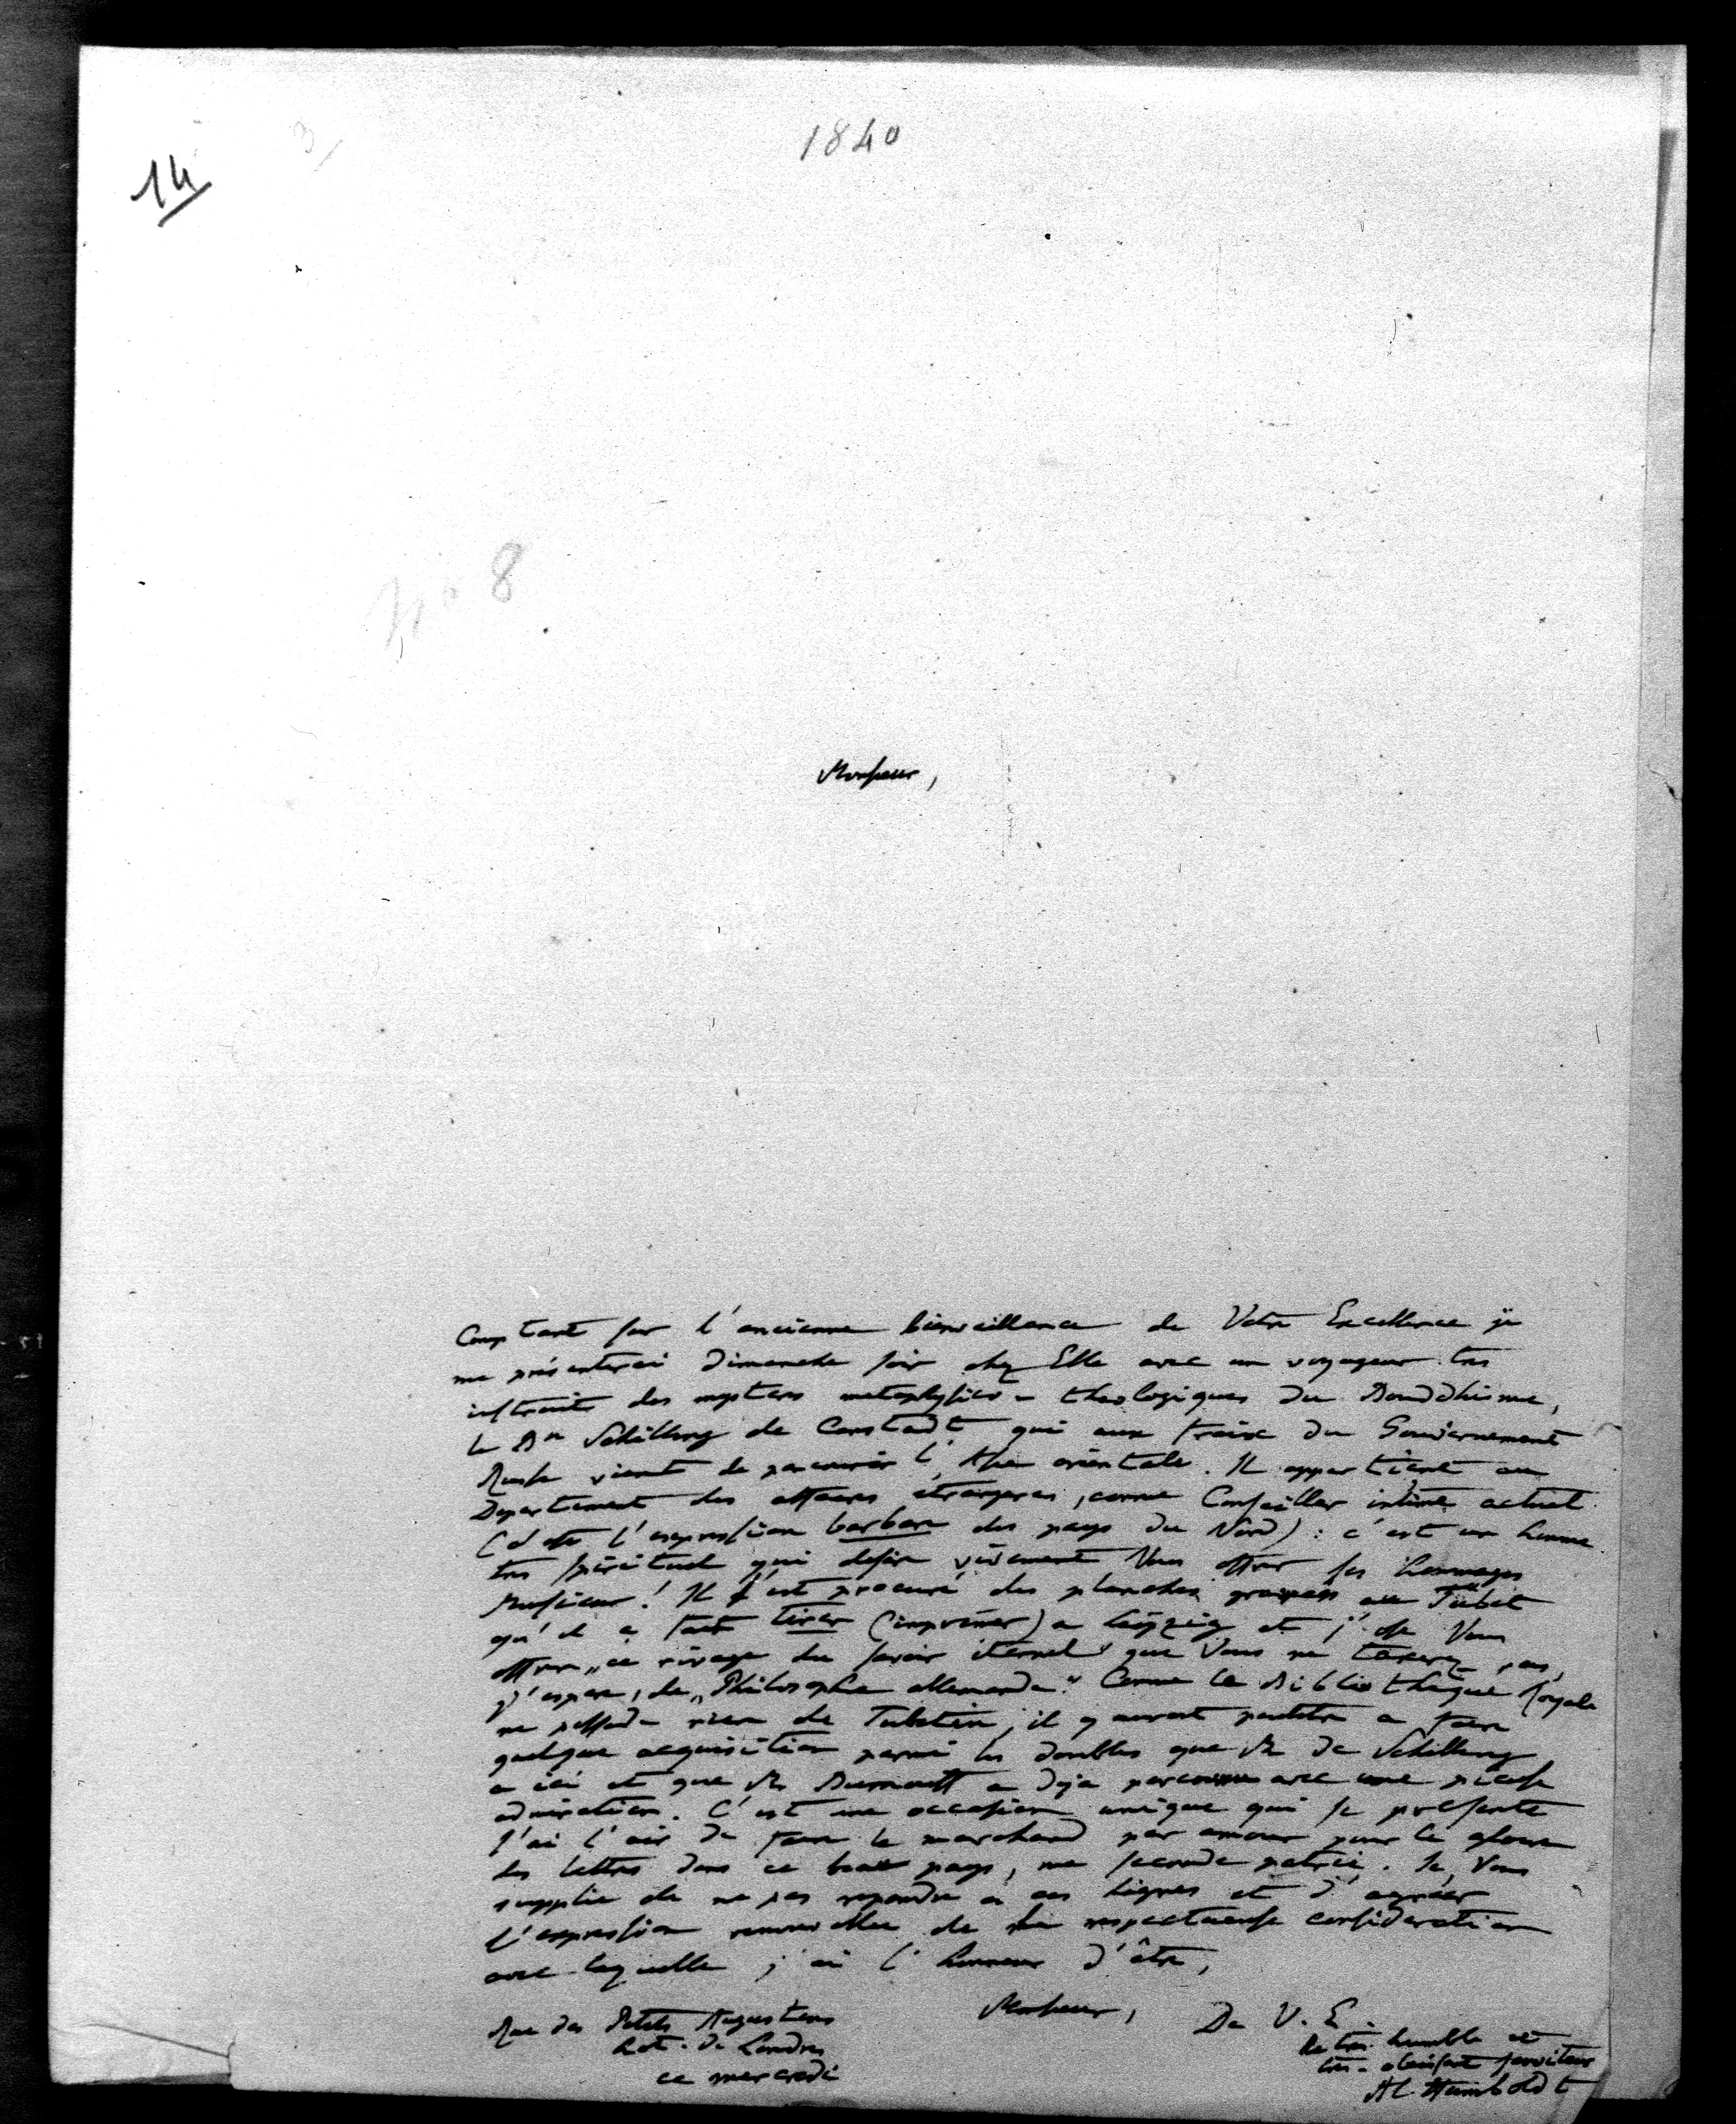 1840
3
14
No 8
Monsieur,
Comptant sur l'ancienne bienveillance de Votre Excellence je
me présenterai Dimanche soir chez Elle avec un voyageur tres
instruit des mysteres metaphysico-theologiques du Bouddhisme,
le Bn Schilling de Canstadt qui aux fraix du Gouvernement
Russe vient de parcourir l'Asie orientale. Il appartient au
Departement des affaires étrangeres, comme Conseiller intime actuel
(c'est l'expression barbare des pays du Nord): c'est un homme
tres spirituel qui desire vivement Vous offrir ses hommages
Monsieur! Il s'est procuré des planches gravees au Tübet
qu'il a fait tirer (imprimer) a Leipzig et j'ose Vous
offrir „ce rivage du savoir éternel" que Vous ne taxerez pas,
j'espere, de „Philosophie allemande." Comme la Bibliothèque Royale
ne possede rien de Tubetin, il y auroit peutetre a faire
quelque acquisition parmi les doubles que Mr de Schilling
a ici et que Mr Burnouff a deja parcourru avec une pieuse
admiration. C'est une occasion unique qui se présente
J'ai l'air de faire le marchand par amour pour la gloire
des lettres dans ce beau pays, ma seconde patrie. Je Vous
supplie de ne pas repondre à ces lignes et d'agréer
l'expression renouvellée de la respectueuse consideration
avec laquelle j'ai l'honneur d'être,
Monsieur,
De V. E.
Rue des Petits Augustins
hot. de Londres
ce mercredi
le tres humble et
tres-obeissant serviteur
Al Humboldt